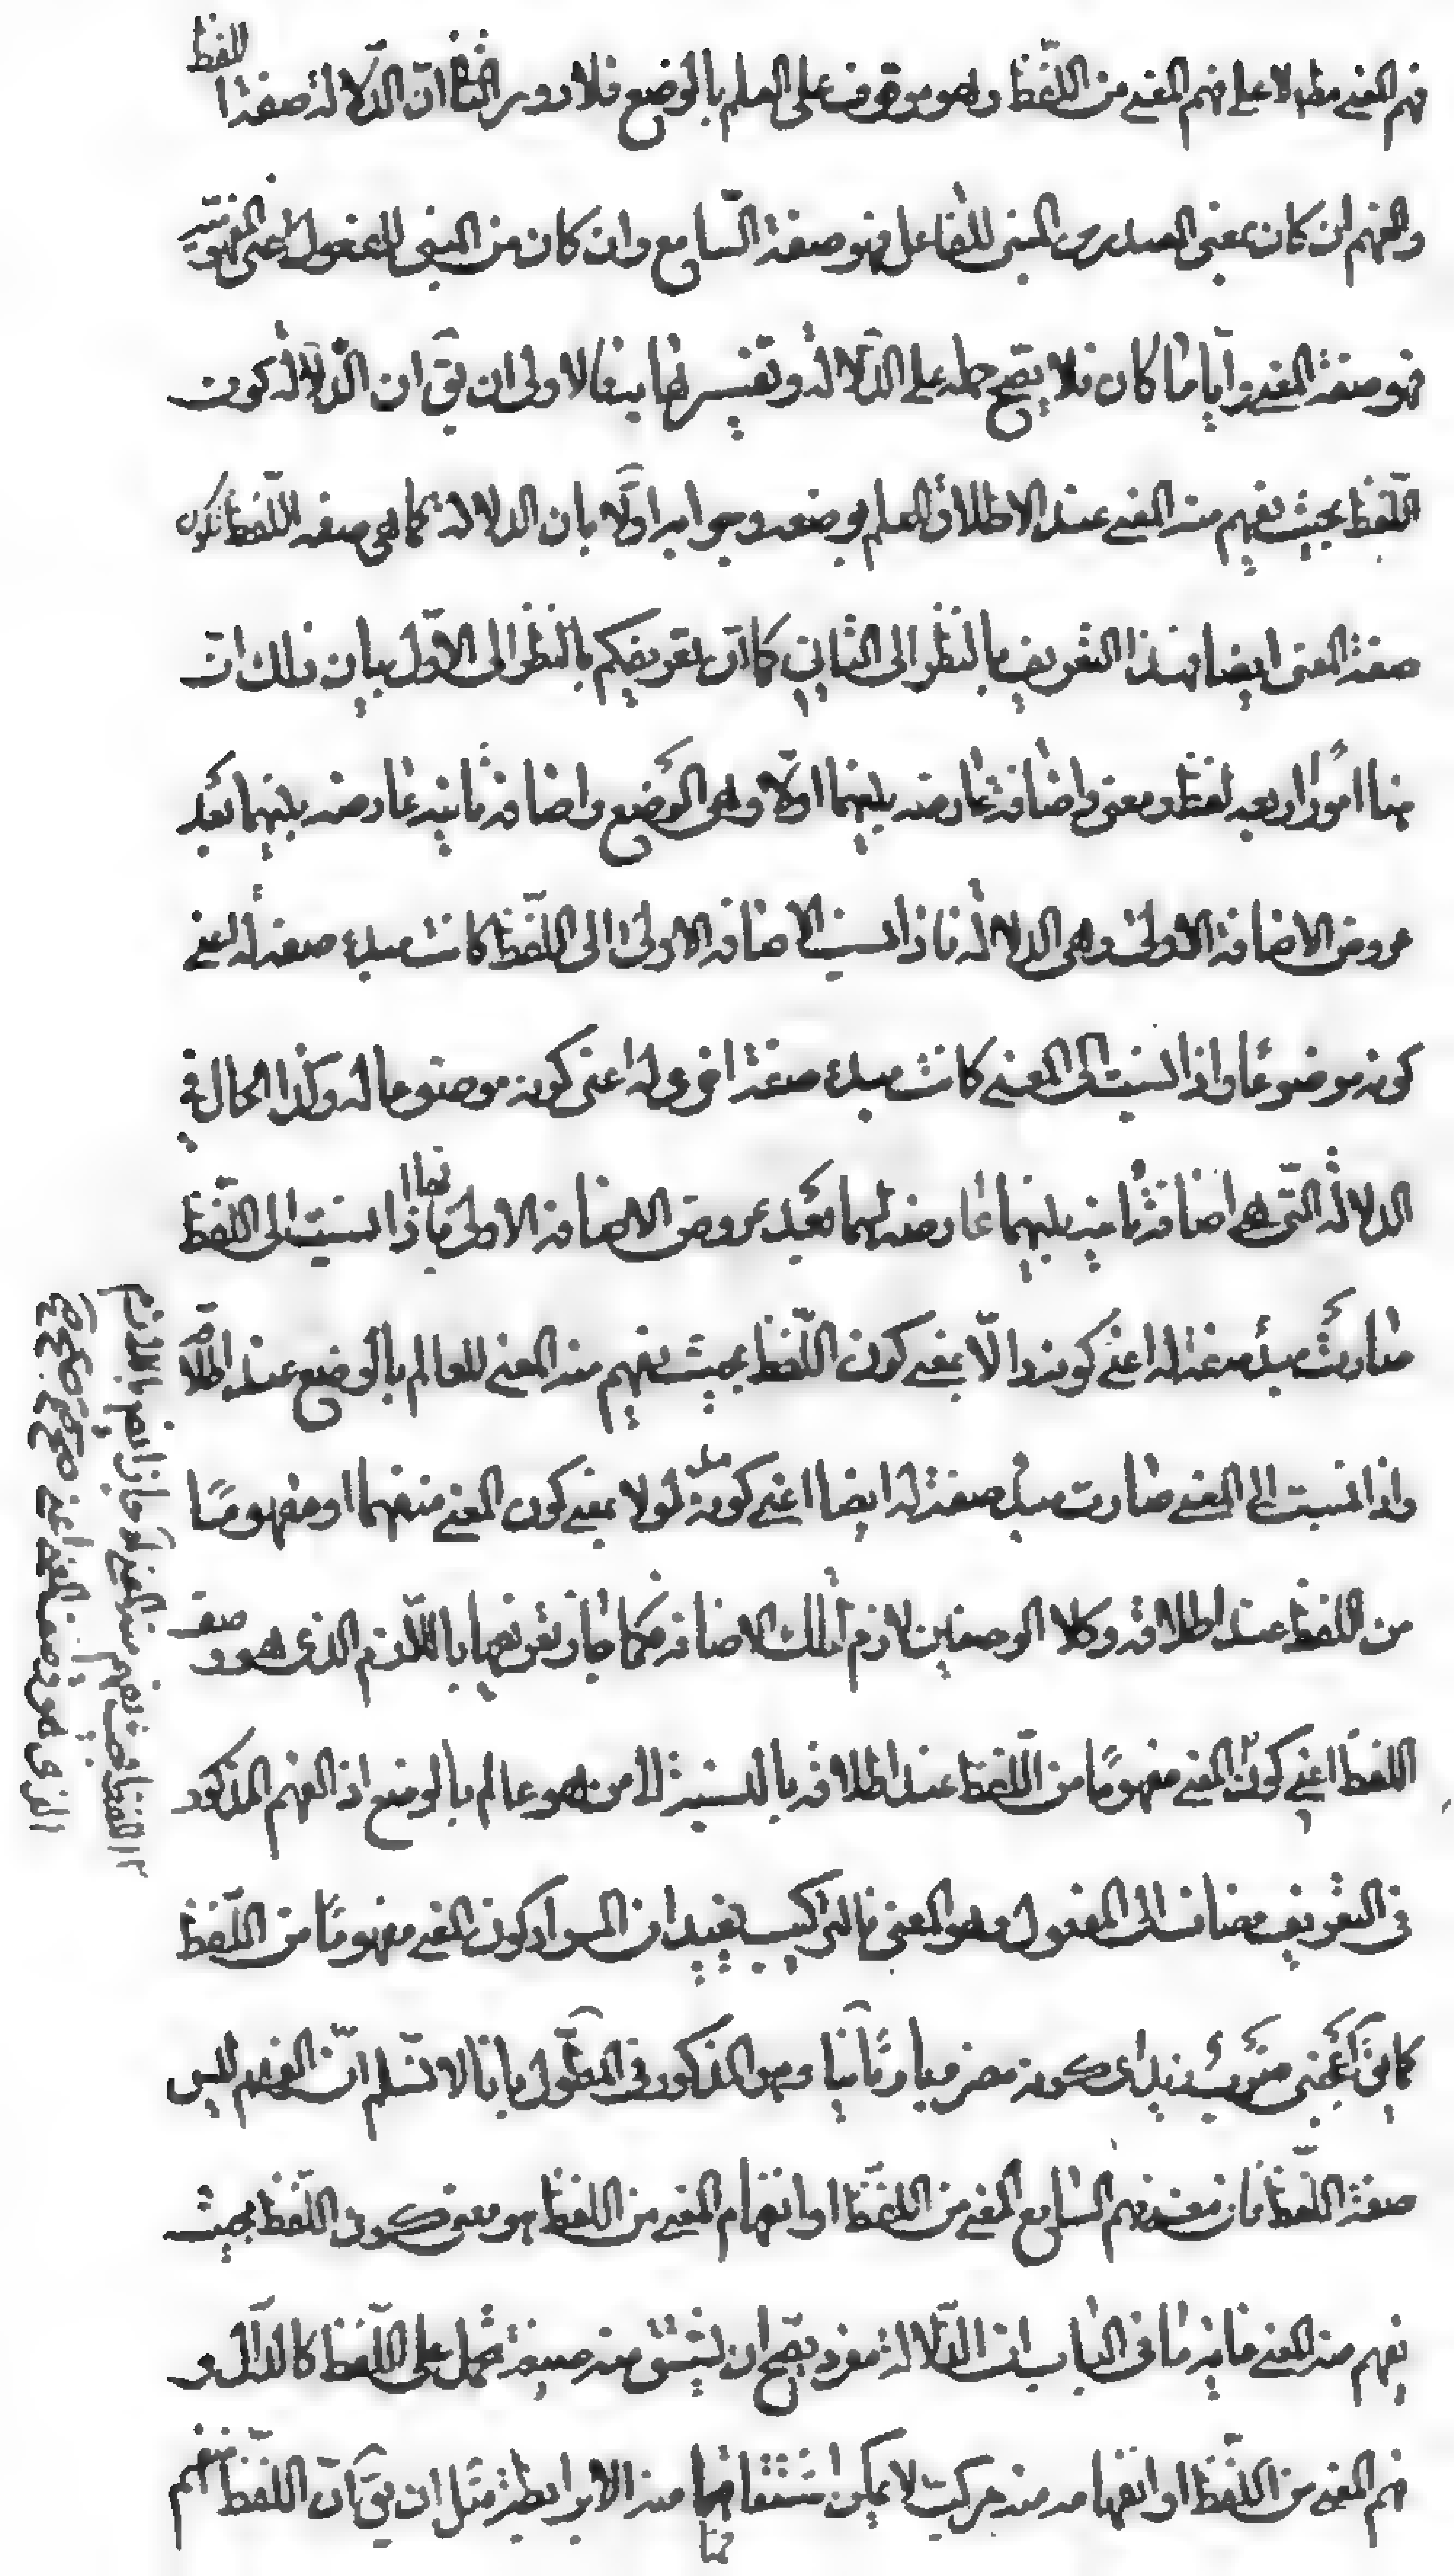 فهم المعنى مطلقا لا على فهم المعنى من اللفظ وهو موقوف على العلم بالوضع فلا دور الثانى ان الدلالة صفة اللفظ
والفهم ان كان بمعنى المصدر من المبنى للفاعل فهو صفة السامع وان كان من المبنى للمفعول اعنى المفهومية
فهو صفة المعنى وايّا ما كان فلا يصح حمله على الدلالة وتفسيرها به فالاولى ان يق ان الدلالة كون
اللفظ بحيث يفهم منه المعنى عند الاطلاق للعلم بوضعه وجوابه اولا بان الدلالة كما هى صفة اللفظ تكون
صفة المعنى ايضا فهذا التعريف بالنظر الى الثانى كما ان تعريفكم بالنظر الى الاول بيان ذلك ان
هنا امورا اربعة لفظ ومعنى واضافة عارضة بينهما اولا وهى الوضع واضافة ثانية عارضة بينهما بعد
عروض الاضافة الاولى وهى الدلالة فاذا نسبت الاضافة الاولى الى اللفظ كانت مبدء صفة له اعنى
كونه موضوعا واذا نسبت الى المعنى كانت مبدء صفة اخرى له اعنى كونه موضوعا له وكذا الحال فى
الدلالة التى هى اضافة ثانية بينهما عارضة لهما بعد عروض الاضافة الاولى فانها اذا نسبت الى اللفظ
صارت مبدء صفة له اعنى كونه دالّا بمعنى كون اللفظ بحيث يفهم منه المعنى للعالم بالوضع عند اطلاقه
واذا نسبت الى المعنى صارت مبدء صفة له ايضا اعنى كونه مدلولا بمعنى كون المعنى منفهما او مفهوما
من اللفظ عند اطلاقه وكلا الوصفين لازم لتلك الاضافة فكما جاز تعريفها باللازم الذى هو صفة
اللفظ اعنى كون المعنى مفهوما من اللفظ عند اطلاقه بالنسبة الى من هو عالم بالوضع اذ الفهم المذكور
فى التعريف مضاف الى المفعول وهو المعنى فالتركيب يفيد ان المراد كون المعنى مفهوما من اللفظ
كما يق اعجبنى ضرب زيد اى كونه مضروبا وثانيا وهو المذكور فى المطول بانا لا نسلم ان الفهم ليس
صفة اللفظ فان معنى فهم السامع المعنى من اللفظ او انفهام المعنى من اللفظ هو معنى كون اللفظ بحيث
يفهم منه المعنى غاية ما فى الباب ان الدلالة مفرد يصح ان يشتق منه صفة تحمل على اللفظ كالدال و
فهم المعنى من اللفظ او انفهامه منه مركب لا يمكن اشتقاقها منه الا برابطة مثل ان يق ان اللفظ منفهم
اللفظ بحيث يفهم منه المعنى جاز ايضا باللازم
الذى هو صفة المعنى اعنى